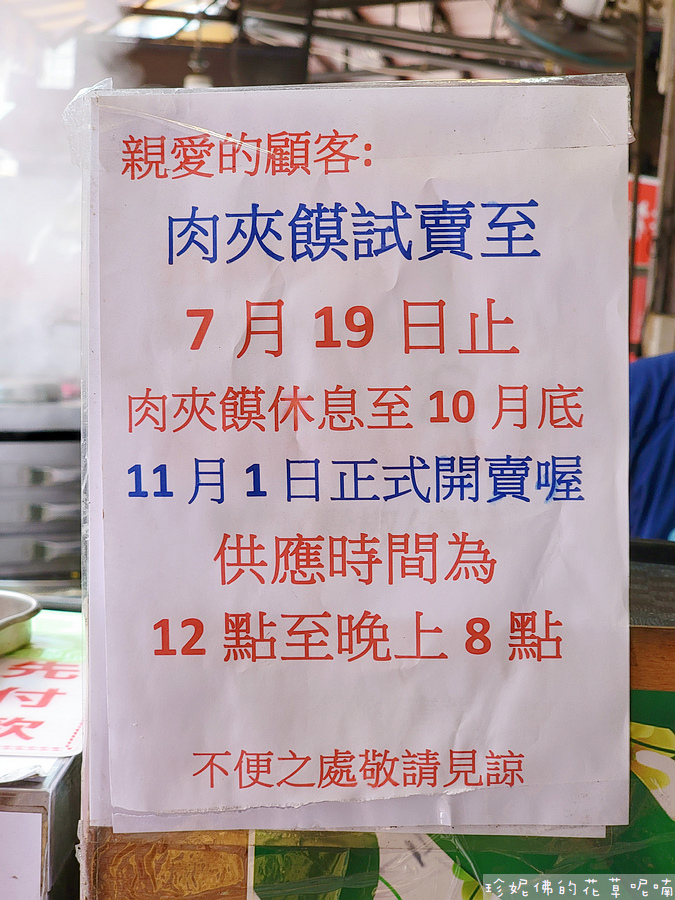 親愛的顧客:
肉夾饃試賣至
7月19日止
肉夾饃休息至10月底
11月1日正式開賣喔
供應時間為
12點至晚上8點
不便之處敬請見諒
先
付
款
珍妮佛的花草呢喃